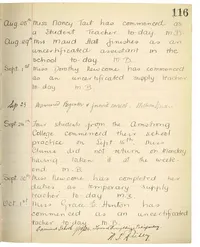 116
Aug 20th Miss Nancy Tait has commenced as
a Student Teacher to-day M.B.
Aug 29th Miss Maud Hall finishes as an
uncertificated assistant in the
school to-day M.B.
Sept. 1st Miss Dorothy Newcome has commenced
as an uncertificated supply teacher
to-day M.B.
Sep 24 Examined Registers & found correct.
Sept 26th Four students from the Armstrong
College commenced their school
practice on Sept 15th. Miss
did not return on Monday
having taken ill at the week-
end. M.B.
Sept 30th Miss Newcome has completed her
duties as temporary supply
teacher to-day M.B.
Oct. 1st Miss Grace E. has
commenced as an uncertificated
teacher to-day M.B.